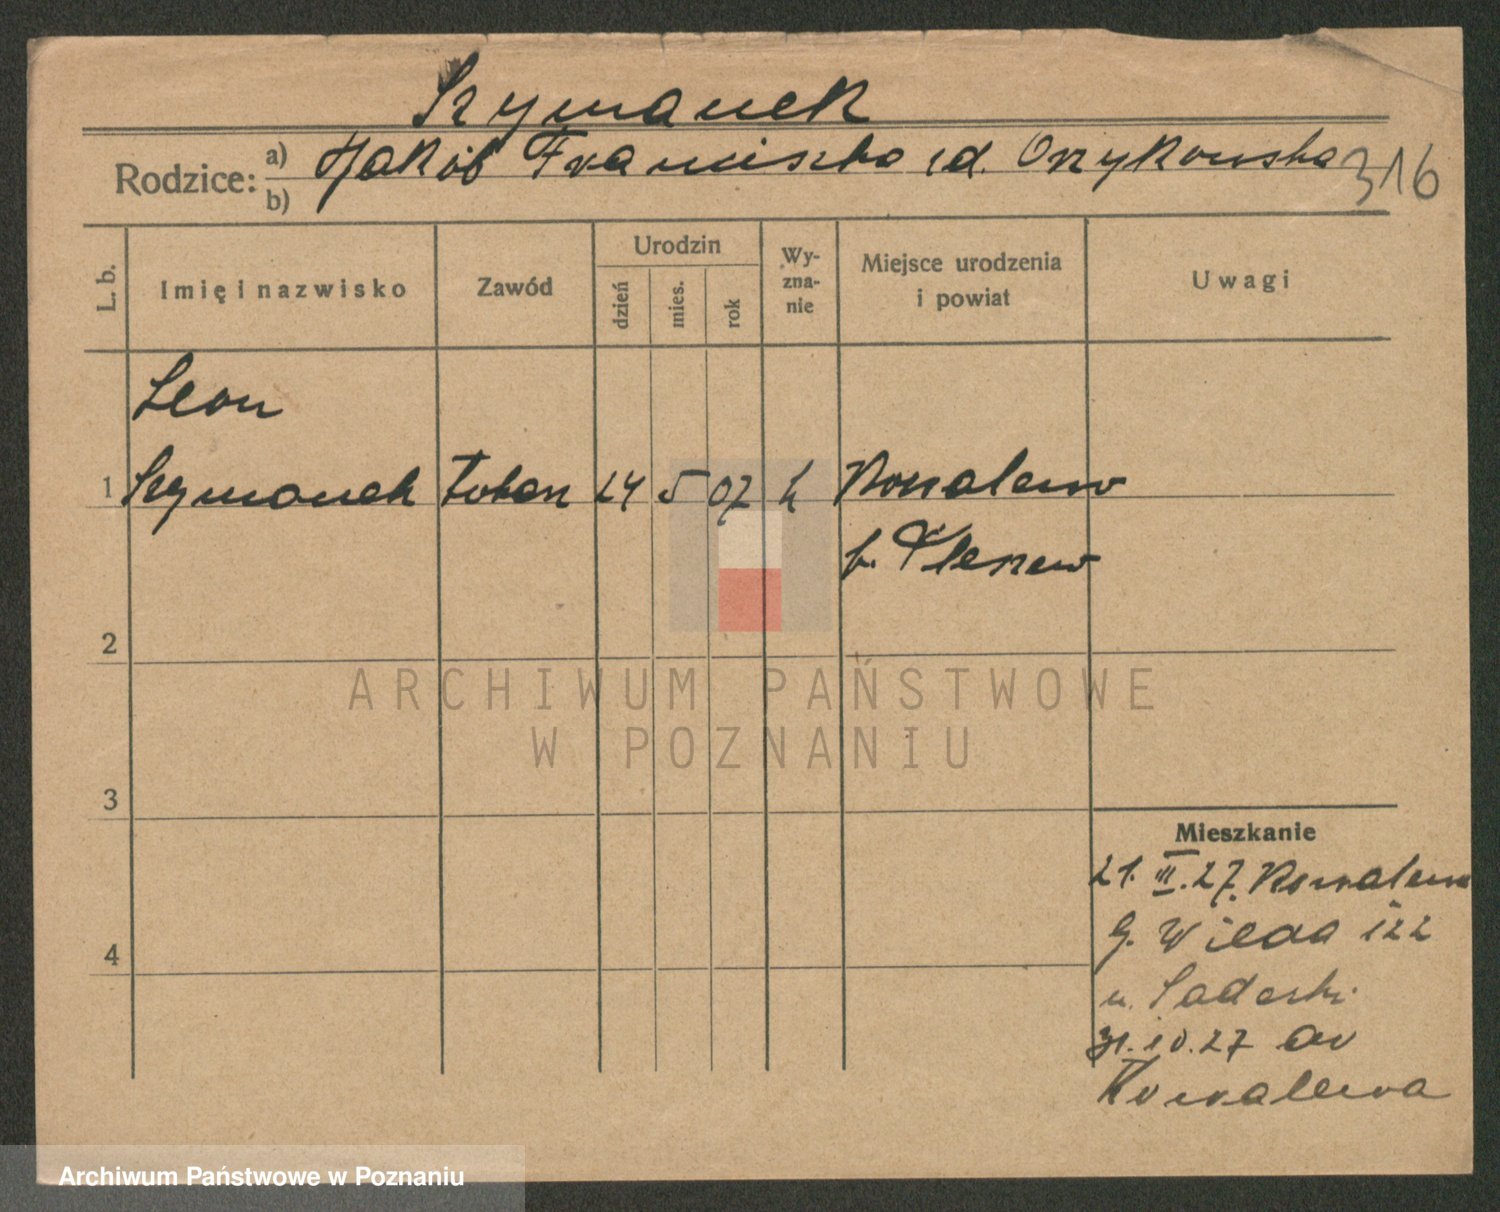 Szymanek
Rodzice: a) Jakób Franciszka z d. Orzykowska 316
b)
L. b. Imię i nazwisko Zawód Urodzin dzień mies. rok Wyznanie Miejsce urodzenia i powiat Uwagi
Leon
1 Szymanek 24 5 07 k Kowalew
p. Pleszew
2
3
4
Mieszkanie
21. III. 27. Kowalew
G. Wilda 122
u.
31. 10. 27 do
Kowalewa
ARCHIWUM PAŃSTWOWE
W POZNANIU
Archiwum Państwowe w Poznaniu